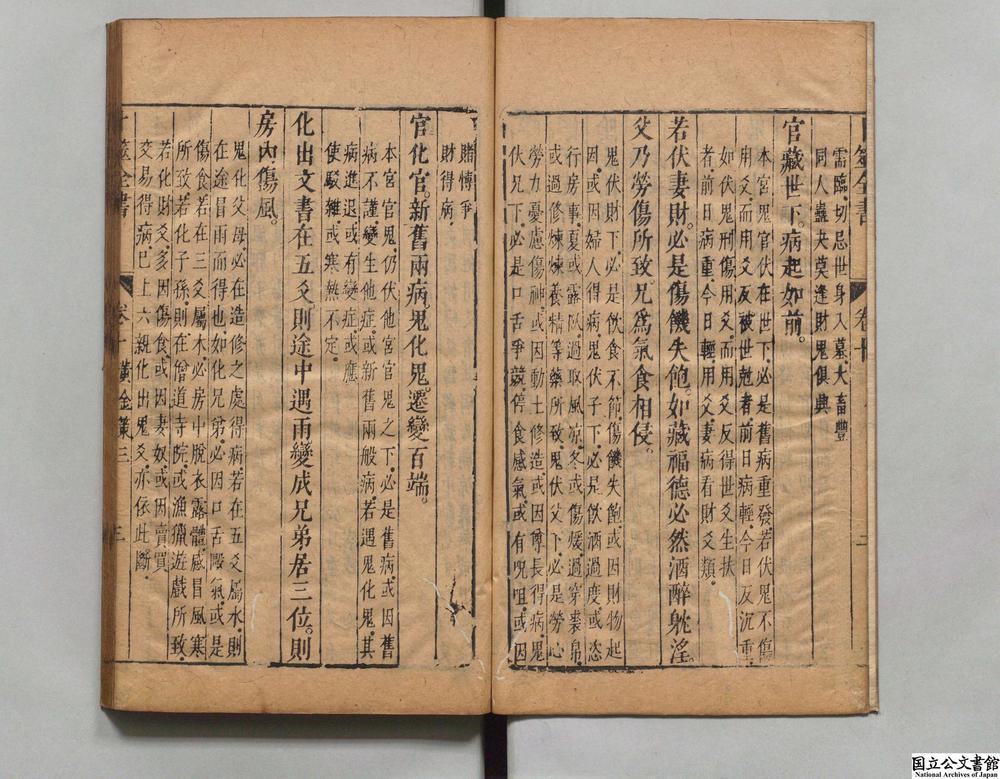 卜筮全書
卷十
二
需臨切忌世身入墓大畜豐
同人蠱夬莫逢財鬼俱興
官藏世下。病起如前。
本宮鬼官伏在世下必是舊病重發若伏鬼不傷
用爻而用爻反被世尅者前日病輕今日反沉重
如伏鬼刑傷用爻而用爻反得世爻生扶
者前日病重今日輕用爻妻病看財爻類
若伏妻財。必是傷饑失飽。如藏福德必然酒醉躭淫。
父乃勞傷所致。兄爲氣食相侵。
鬼伏財下必是飲食不節傷饑失飽或因財物起
因或因婦人得病鬼伏子下必是飲酒過度或恣
行房事夏或露臥過取風凉冬或傷煖過穿裘帛
或過修煉養精等藥所致鬼伏父下必是勞心
勞力憂慮傷神或因動土修造或因尊長得病鬼
伏兄下必是口舌爭競停食感氣或有呪咀或因
賭愽爭
財得病
官化官。新舊兩病。鬼化鬼。遷變百端。
本宮官鬼仍伏他宮官鬼之下必是舊病或因舊
病不謹變生他症或新舊兩般病若遇鬼化鬼其
病進退或有變症或應
使駁雜或寒熱不定
化出文書在五爻。則途中遇雨。變成兄弟居三位。則
房內傷風。
鬼化父母必在造修之處得病若在五爻屬水則
在途冒雨而得也如化兄弟必因口舌毆氣或是
傷食若在三爻屬木必房中脫衣露體感冒風寒
所致若化子孫則在僧道寺院或漁獵遊戲所致
若化財爻多因傷食或因妻奴或因賣買
交易得病已上六親化出鬼爻亦依此斷
卜筮全書
卷十黃金策三
三
国立公文書館
National Archives of Japan